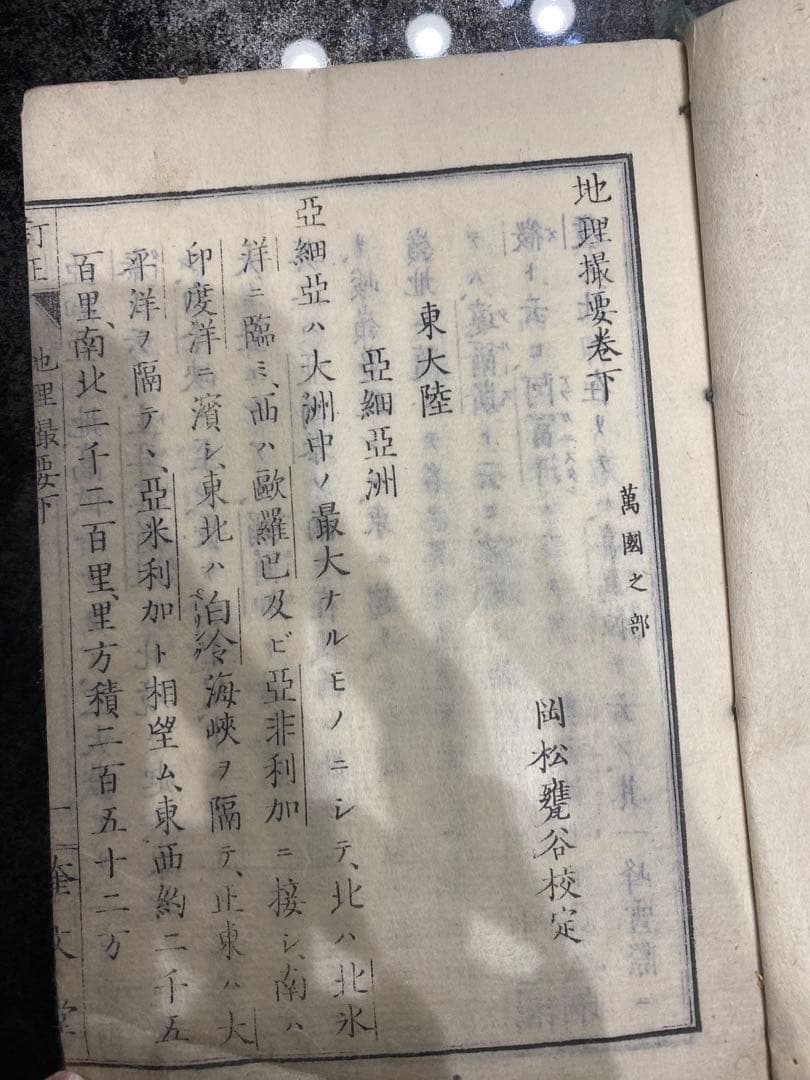 地理撮要卷下
萬國之部
岡松甕谷校定
東大陸
亞細亞洲
亞細亞ハ大洲中ノ最大ナルモノニシテ、北ハ北氷
洋ニ臨ミ、西ハ歐羅巴及ビ亞非利加ニ接シ、南ハ
印度洋ニ濱シ、東北ハ白冷海峽ヲ隔テ、正東ハ大
平洋ヲ隔テヽ、亞米利加ト相望ム、東西約二千五
百里、南北二千二百里、里方積二百五十二万
訂正
地理撮要下
一
奎文堂